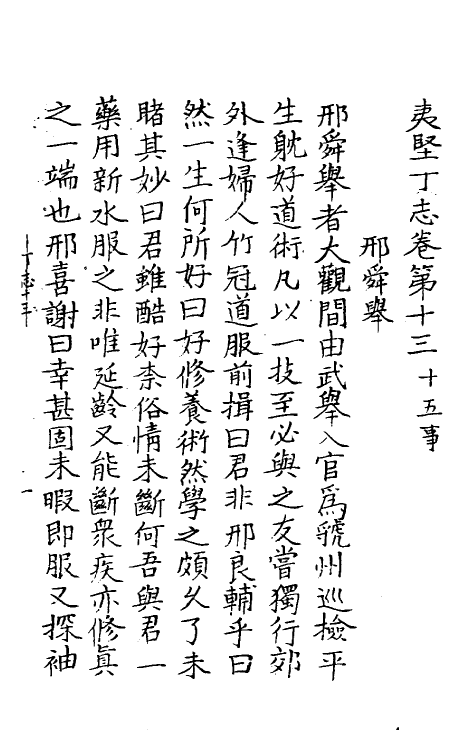 夷堅丁志卷第十三 十五事
邢舜舉
邢舜舉者大觀間由武舉入官爲虢州巡檢平
生躭好道術凡以一技至必與之友嘗獨行郊
外逢婦人竹冠道服前揖曰君非邢良輔乎曰
然一生何所好曰好修養術然學之頗乆了未
睹其妙曰君雖酷好柰俗情未斷何吾與君一
藥用新水服之非唯延齡又能斷衆疾亦修真
之一端也邢喜謝曰幸甚固未暇即服又探袖
丁志十三
一